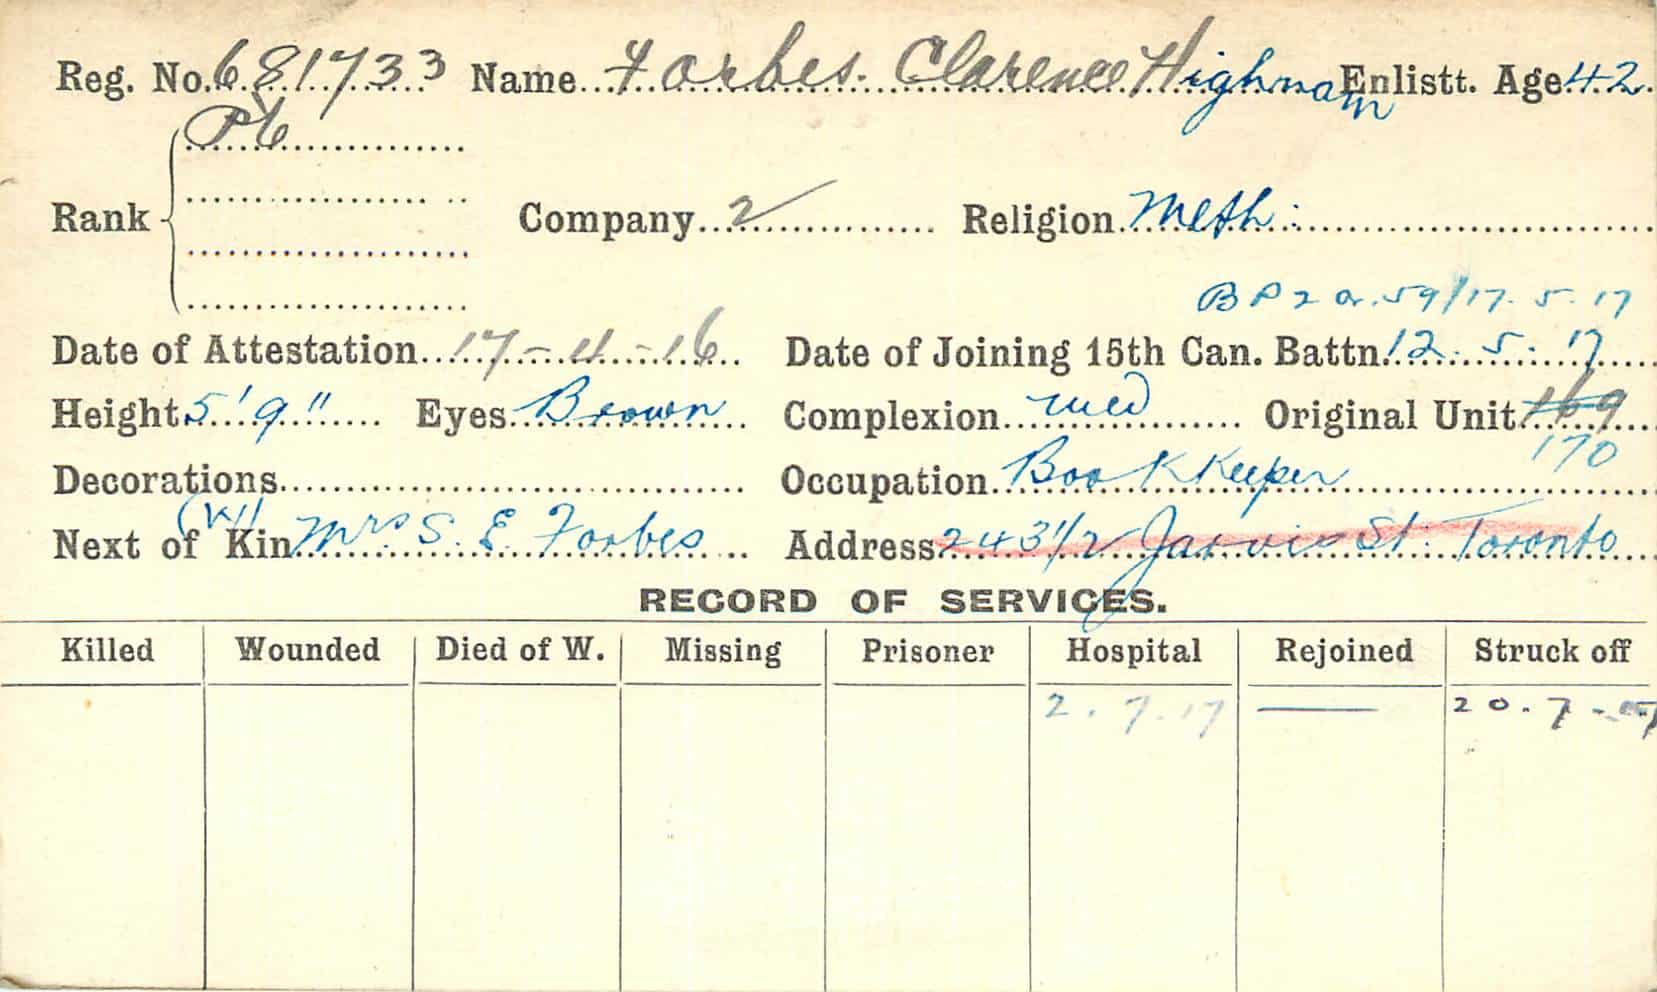 Reg. No. 681733 Name Forbes. Clarence Highnam Enlistt. Age 42
Pte
Rank Company 2 Religion Meth:
BP2 Or. 59/17. 5. 17
Date of Attestation 17-11-16 Date of Joining 15th Can. Battn. 12. 5. 17
Height 5'9" Eyes Brown Complexion Med Original Unit 169
170
Decorations Occupation Book Keeper
(W)
Next of Kin Mrs S. E. Forbes Address 243 1/2 Jarvis St. Toronto
RECORD OF SERVICES.
Killed Wounded Died of W. Missing Prisoner Hospital Rejoined Struck off
2. 7. 17 — 20. 7 - 17